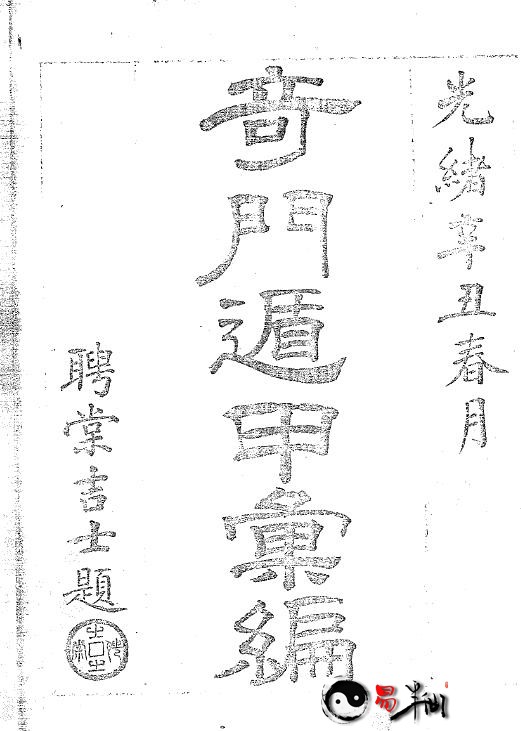 光緒辛丑春月
奇門遁甲彙編
聘棠吉士題
易